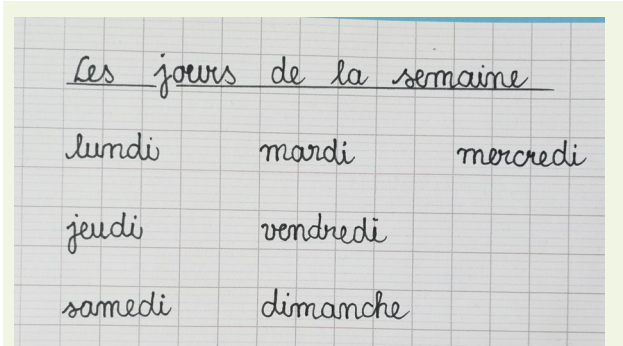 Les jours de la semaine
lundi mardi mercredi
jeudi vendredi
samedi dimanche